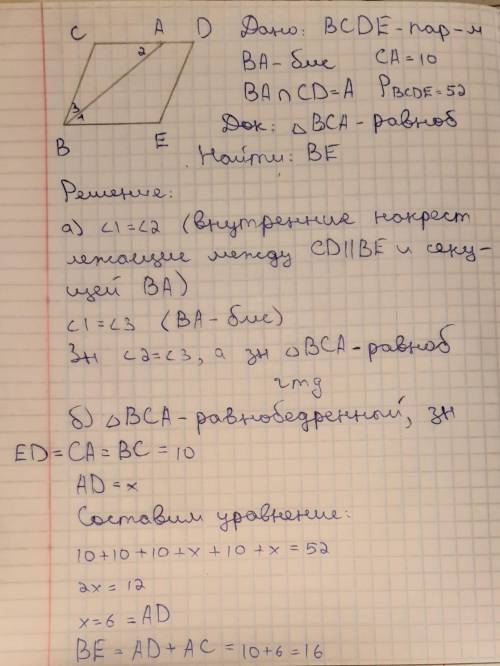 C A D
2
3
1
B E
Дано: BCDE - пар-м
BA - бис CA = 10
BA ∩ CD = A P BCDE = 52
Док: △BCA - равноб
Найти: BE
Решение:
а) ∠1=∠2 (внутренние накрест
лежащие между CD||BE и секу-
щей BA)
∠1=∠3 (BA - бис)
Зн ∠2=∠3, а зн △BCA - равноб
чтд
б) △BCA - равнобедренный, зн
ED = CA = BC = 10
AD = x
Составим уравнение:
10+10+10+x+10+x = 52
2x = 12
x = 6 = AD
BE = AD + AC = 10+6 = 16